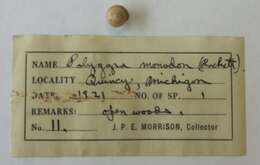 NAME Polygyra monodon (Rackett).
LOCALITY Quincy, Michigan
DATE 1921 NO. OF SP. 1
REMARKS: open woods.
No. 11. J. P. E. MORRISON, Collector